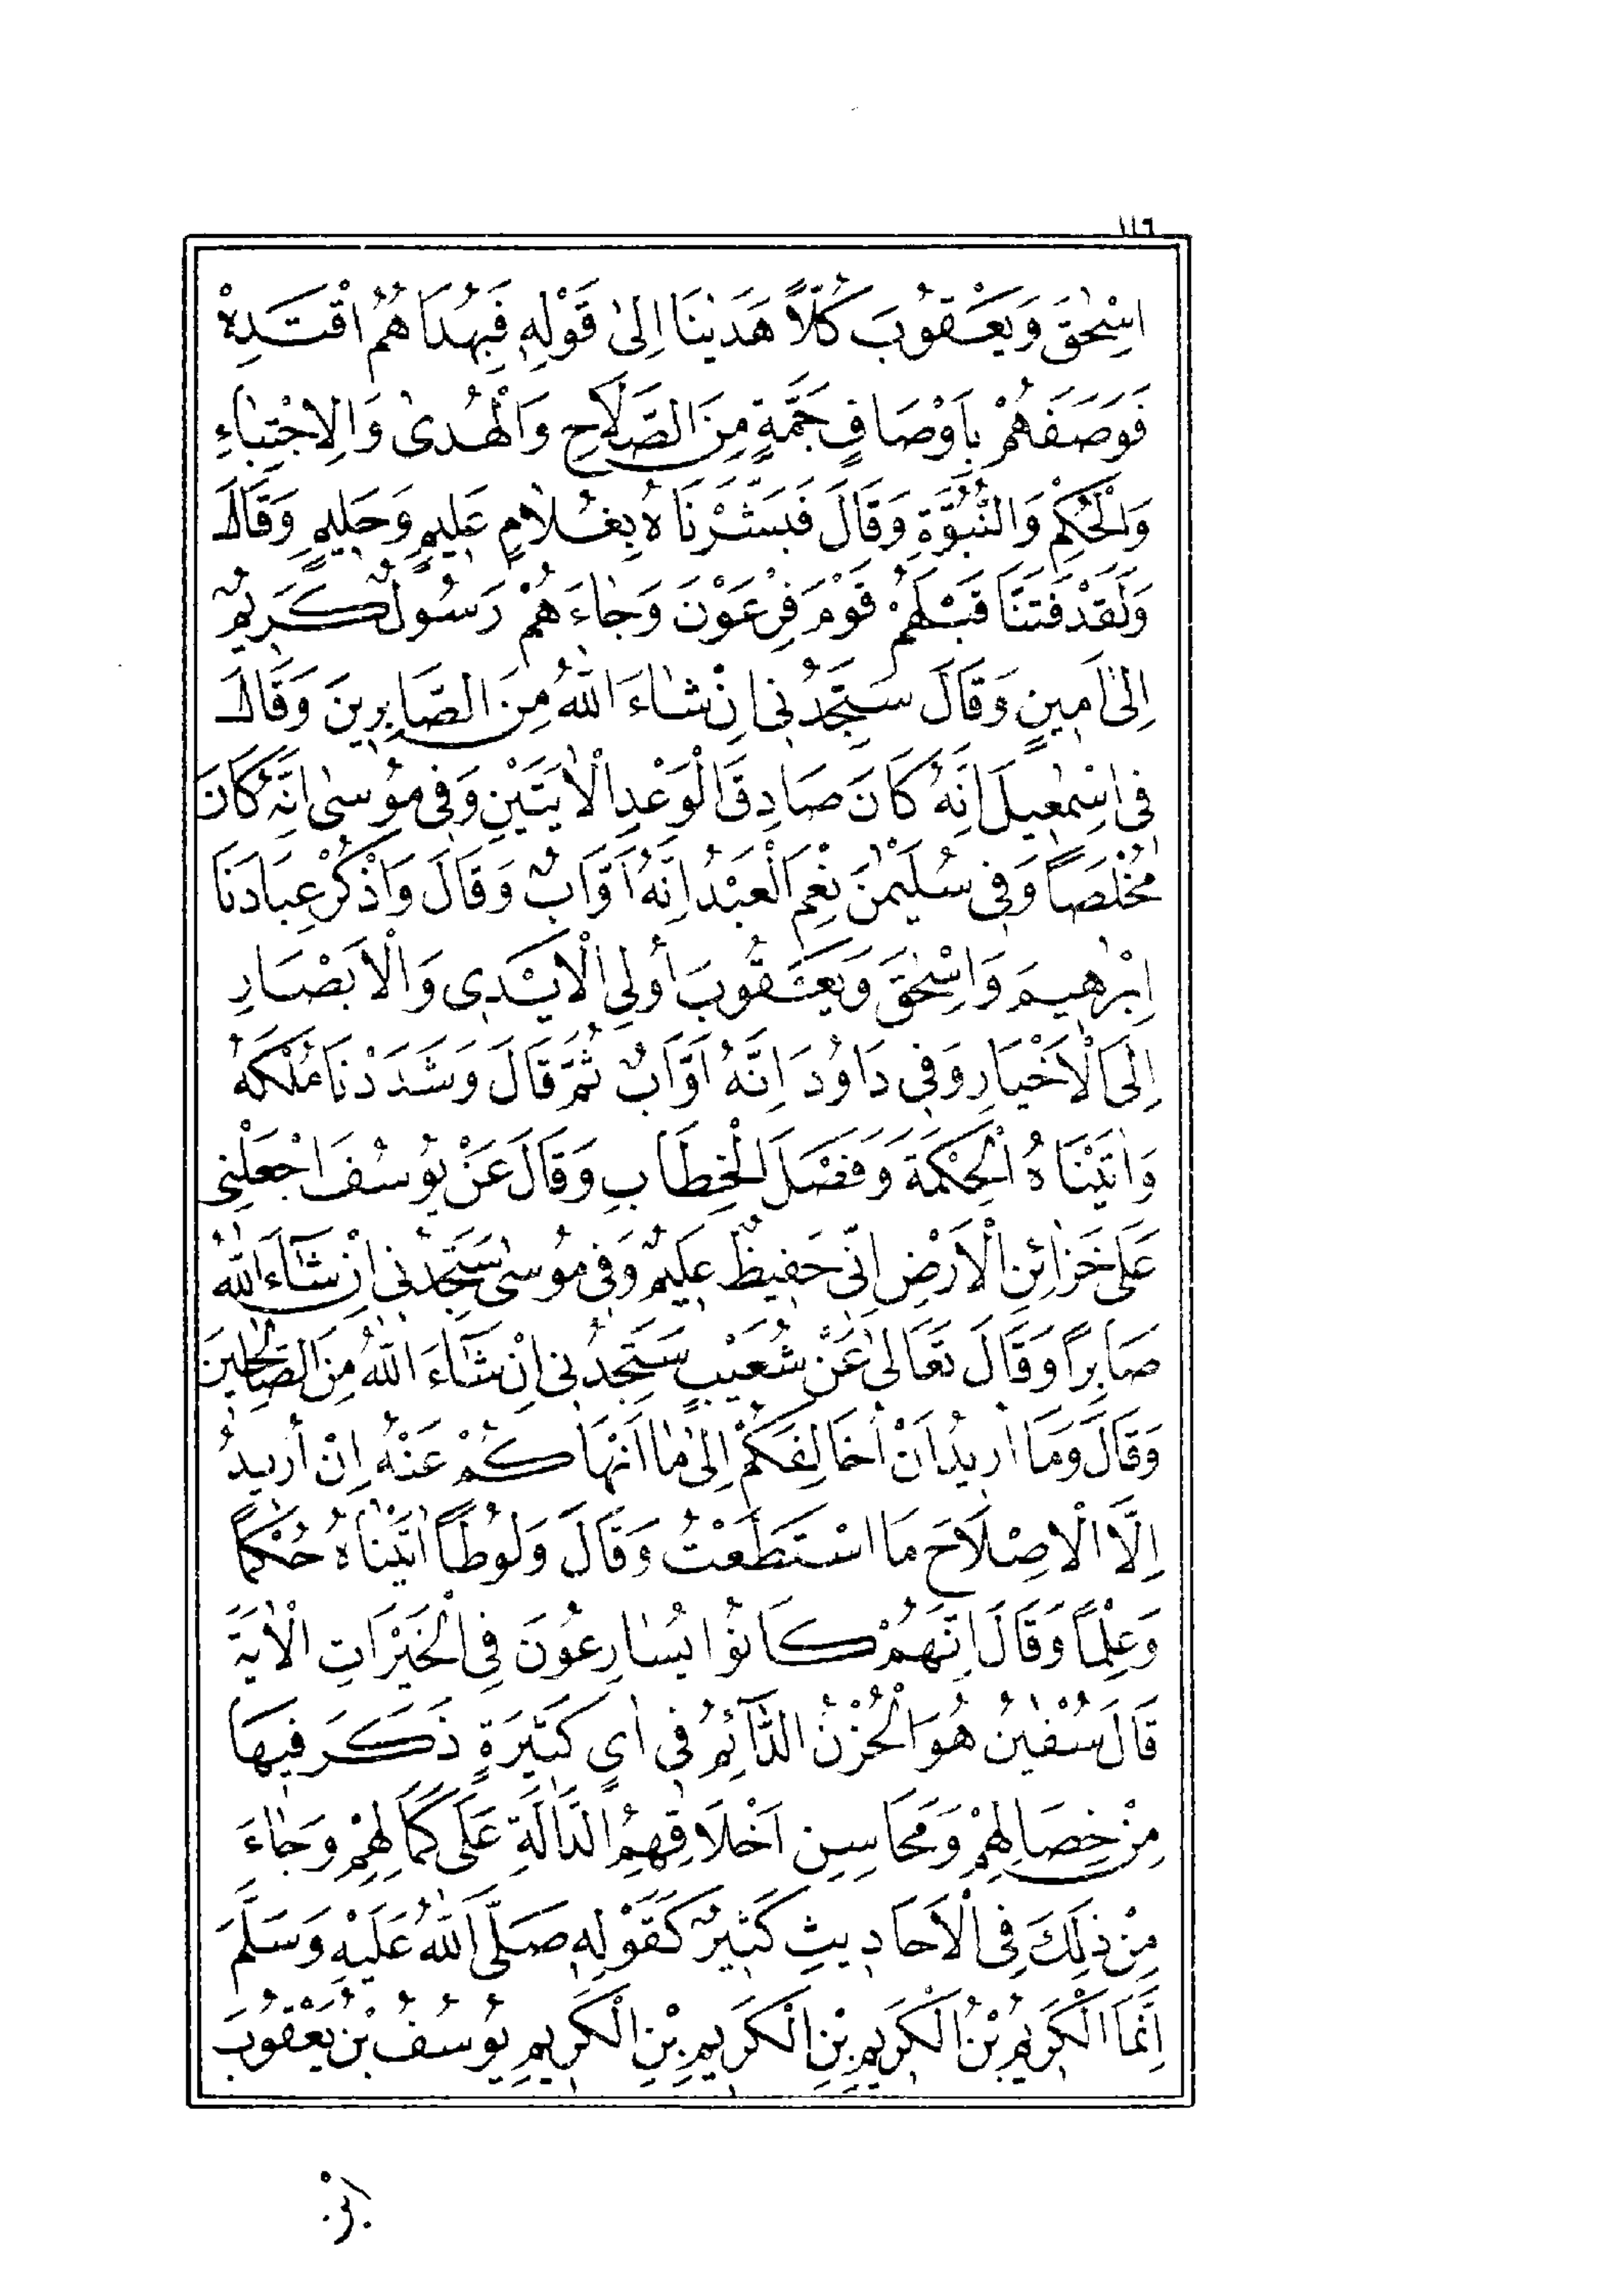 ١١٦
اِسْحٰقَ وَيَعْقُوبَ كُلًّا هَدَيْنَا اِلىٰ قَوْلِهٖ فَبِهُدَاهُمُ اقْتَدِهْ
فَوَصَفَهُمْ بِاَوْصَافٍ جَمَّةٍ مِنَ الصَّلَاحِ وَالْهُدىٰ وَالِاجْتِبٰاءِ
وَالْحُكْمِ وَالنُّبُوَّةِ وَقَالَ فَبَشَّرْنَاهُ بِغُلَامٍ عَلِيمٍ وَحَلِيمٍ وَقَالَ
وَلَقَدْ فَتَنَّا قَبْلَهُمْ قَوْمَ فِرْعَوْنَ وَجٰاءَهُمْ رَسُولٌ كَرِيمٌ
اِلىٰ اَمِينٍ وَقَالَ سَتَجِدُنِى اِنْ شٰاءَ اللّٰهُ مِنَ الصَّابِرِينَ وَقَالَ
فِى اِسْمٰعِيلَ اِنَّهُ كَانَ صَادِقَ الْوَعْدِ الْاٰيَتَيْنِ وَفِى مُوسىٰ اِنَّهُ كَانَ
مُخْلَصًا وَفِى سُلَيْمٰنَ نِعْمَ الْعَبْدُ اِنَّهُ اَوَّابٌ وَقَالَ وَاذْكُرْ عِبَادَنَا
اِبْرٰهِيمَ وَاِسْحٰقَ وَيَعْقُوبَ اُولِى الْاَيْدِى وَالْاَبْصَارِ
اِلَى الْاَخْيَارِ وَفِى دَاوُدَ اِنَّهُ اَوَّابٌ ثُمَّ قَالَ وَشَدَدْنَا مُلْكَهُ
وَاٰتَيْنَاهُ الْحِكْمَةَ وَفَصْلَ الْخِطَابِ وَقَالَ عَنْ يُوسُفَ اجْعَلْنِى
عَلىٰ خَزٰائِنِ الْاَرْضِ اِنِّى حَفِيظٌ عَلِيمٌ وَفِى مُوسىٰ سَتَجِدُنِى اِنْ شَآءَ اللّٰهُ
صَابِرًا وَقَالَ تَعَالىٰ عَنْ شُعَيْبٍ سَتَجِدُنِى اِنْ شَآءَ اللّٰهُ مِنَ الصَّالِحِينَ
وَقَالَ وَمَا اُرِيدُ اَنْ اُخَالِفَكُمْ اِلىٰ مٰا اَنْهَاكُمْ عَنْهُ اِنْ اُرِيدُ
اِلَّا الْاِصْلَاحَ مَا اسْتَطَعْتُ وَقَالَ وَلُوطًا اٰتَيْنَاهُ حُكْمًا
وَعِلْمًا وَقَالَ اِنَّهُمْ كَانُوا يُسَارِعُونَ فِى الْخَيْرَاتِ الْاٰيَةَ
قَالَ سُفْيٰنُ هُوَ الْحُزْنُ الدَّآئِمُ فِى اٰىٍ كَثِيرَةٍ ذَكَرَ فِيهَا
مِنْ خِصَالِهِمْ وَمَحَاسِنِ اَخْلَاقِهِمُ الدَّالَّةِ عَلىٰ كَمَالِهِمْ وَجٰاءَ
مِنْ ذٰلِكَ فِى الْاَحَادِيثِ كَثِيرٌ كَقَوْلِهٖ صَلَّى اللّٰهُ عَلَيْهِ وَسَلَّمَ
اِنَّمَا الْكَرِيمُ بْنُ الْكَرِيمِ بْنِ الْكَرِيمِ بْنِ الْكَرِيمِ يُوسُفُ بْنُ يَعْقُوبَ
ابْنِ